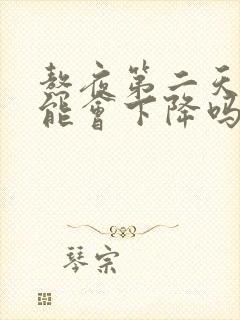 熬夜第二天
能會下降吗
琴宗